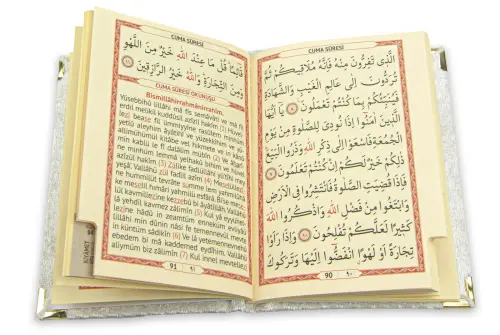 CUMA SÛRESİ
الَّذ۪ي تَفِرُّونَ مِنْهُ فَاِنَّهُ مُلَاق۪يكُمْ ثُمَّ
تُرَدُّونَ اِلٰى عَالِمِ الْغَيْبِ وَالشَّهَادَةِ
فَيُنَبِّئُكُمْ بِمَا كُنْتُمْ تَعْمَلُونَ ﴿٨﴾ يَٓا اَيُّهَا
الَّذ۪ينَ اٰمَنُٓوا اِذَا نُودِيَ لِلصَّلٰوةِ مِنْ يَوْمِ
الْجُمُعَةِ فَاسْعَوْا اِلٰى ذِكْرِ اللّٰهِ وَذَرُوا الْبَيْعَ
ذٰلِكُمْ خَيْرٌ لَكُمْ اِنْ كُنْتُمْ تَعْلَمُونَ ﴿٩﴾
فَاِذَا قُضِيَتِ الصَّلٰوةُ فَانْتَشِرُوا فِي الْاَرْضِ
وَابْتَغُوا مِنْ فَضْلِ اللّٰهِ وَاذْكُرُوا اللّٰهَ
كَث۪يرًا لَعَلَّكُمْ تُفْلِحُونَ ﴿١٠﴾ وَاِذَا رَاَوْا
تِجَارَةً اَوْ لَهْوًا انْفَضُّٓوا اِلَيْهَا وَتَرَكُوكَ
90 ٩٠
CUMA SÛRESİ
قَٓائِمًا قُلْ مَا عِنْدَ اللّٰهِ خَيْرٌ مِنَ اللَّهْوِ
وَمِنَ التِّجَارَةِ وَاللّٰهُ خَيْرُ الرَّازِق۪ينَ ﴿١١﴾
CUMA SÛRESİ OKUNUŞU
Bismillâhirrahmânirrahîm.
Yüsebbihü lillâhi mâ fis semâvâti ve mâ fil
erdıl melikil kuddûsil azîzil hakîm (1) Hüvel
lezî bease fil ümmiyyîne rasûlem minhüm
yetlû aleyhim âyâtihî ve yüzekkîhim ve yü
allimühümül kitâbe vel hıkmete ve in kânû
min kablü le fî dalâlim mübîn (2) Ve âharî
ne minhüm lemmâ yelhakû bihim ve hüvel
azîzül hakîm (3) Zâlike fadlüllâhi yü'tîhi mey
yeşâ' Vallâhü zül fadlil azîm (4) Meselüllezî
ne hummilüt tevrâte sümme lem yahmilûhâ
ke meselil hımâri yahmilü esfârâ. Bi'se me
selül kavmillezîne kezzebû bi âyâtillâh. Vallâhü
lâ yehdil kavmez zâlimîn (5) Kul yâ eyyühel
lezîne hâdû in zeamtüm enneküm evliyâü
lillâhi min dûnin nâsi fe temennevül mevte
in küntüm sâdikîn (6) Ve lâ yetemennevnehû
ebedem bi mâ kaddemet eydîhim. Vallâhü
alîymüm biz zâlimîn (7) Kul innel mevtellezî
91 ٩١
KIYAMET